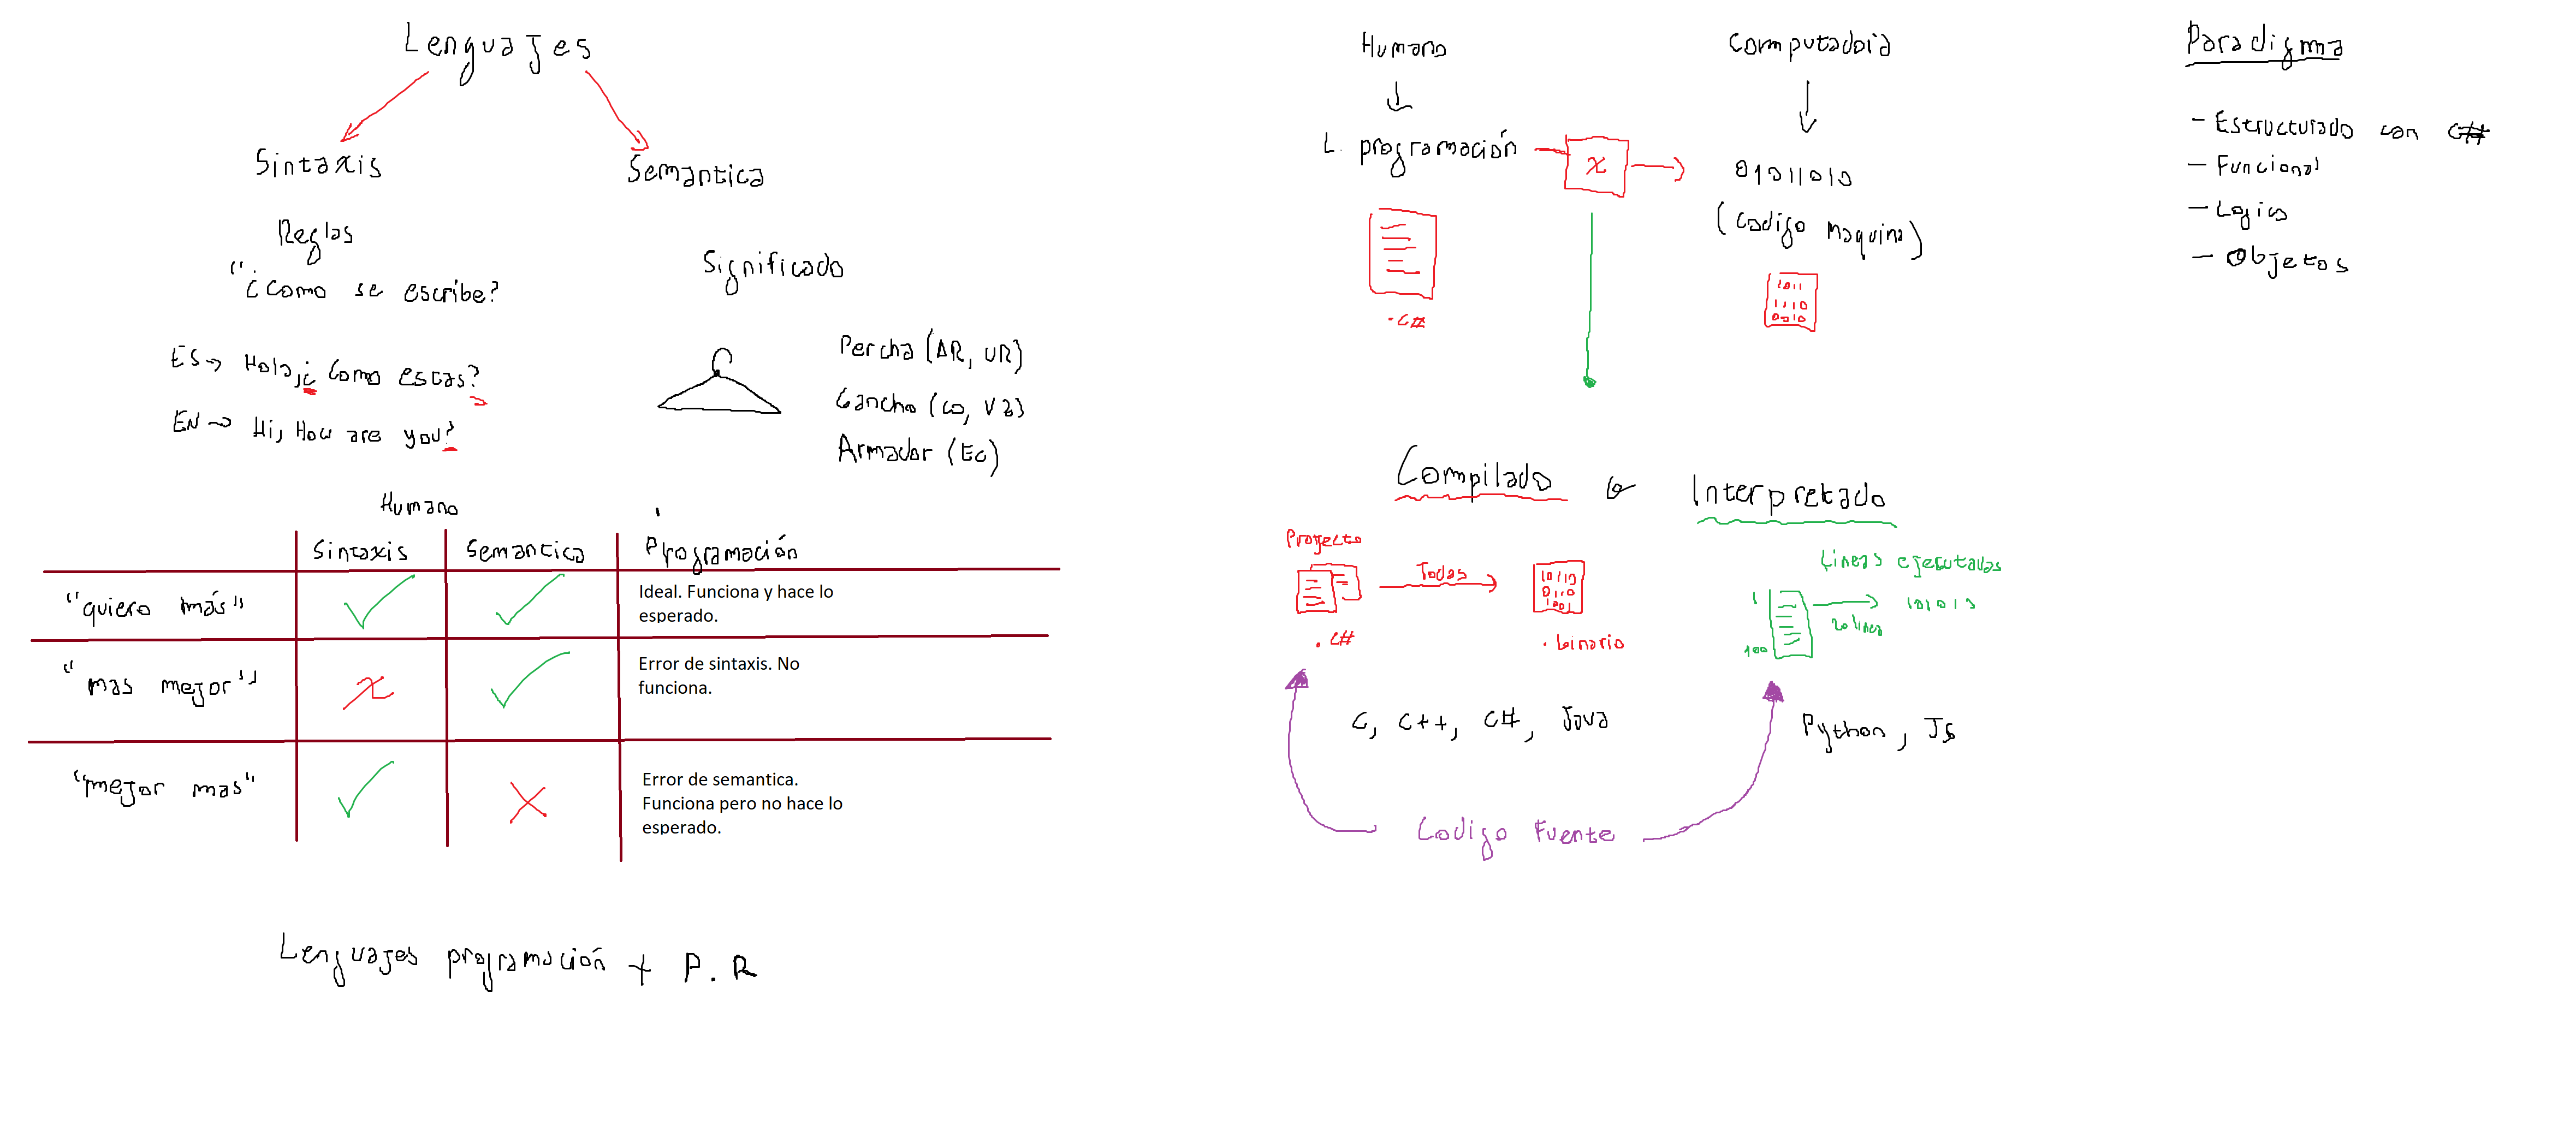 Lenguajes
Sintaxis
Semantica
Reglas
"¿como se escribe?
ES→ Hola, ¿ Como estas?
EN→ Hi, How are you?
Significado
Percha (AR, UR)
Gancho (CO, VZ)
Armador (EC)
Humano
Sintaxis
Semantica
Programación
"quiero más"
Ideal. Funciona y hace lo
esperado.
"mas mejor"
Error de sintaxis. No
funciona.
"mejor mas"
Error de semantica.
Funciona pero no hace lo
esperado.
Lenguajes programación + P.R
Humano
Computadora
L. programación
x
01011010
(Codigo Maquina)
.C#
1011
1110
0010
Compilado o Interpretado
Proyecto
Todas
10110
0110
1001
.C#
.binario
Lineas ejecutadas
1
100
20 linea
101013
C, C++, C#, Java
Python, JS
Codigo Fuente
Paradigma
- Estructurado con C#
- Funcional
- Logico
- Objetos